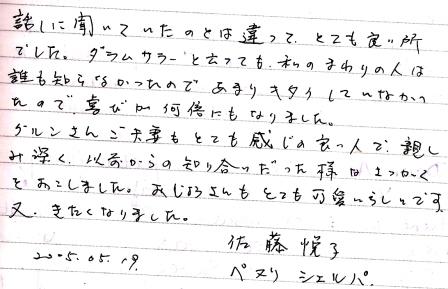 話しに聞いていたのとは違って、とても良い所
でした。ダラムサラーと云っても、私のまわりの人は
誰も知らなかったので あまりキタイしていなかっ
たので、喜びが何倍にもなりました。
グルンさんご夫妻もとても感じの良い人で、親し
み深く、以前からの知り合いだった様なさっかく
をおこしました。おじょうさんもとても可愛いらしいです。
又、きたくなりました。
2005.05.19.
佐藤悦子
ペマリ シェルパ.